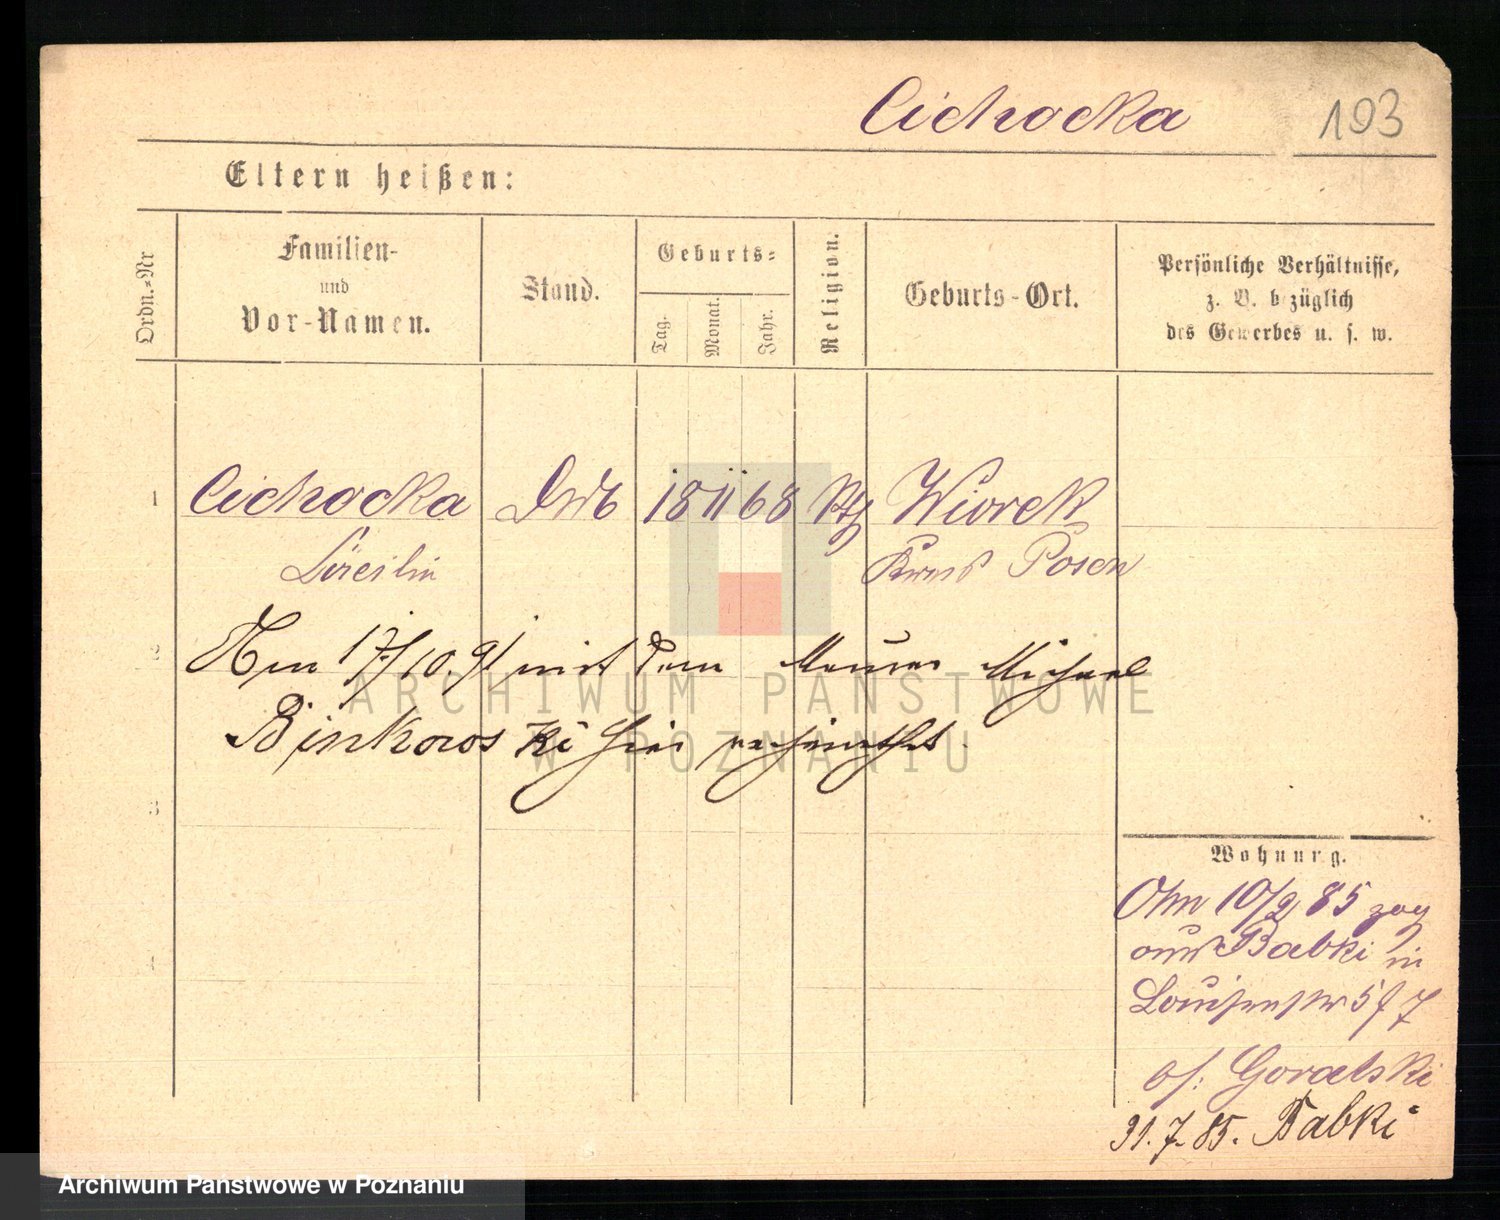 Cichocka 193
Eltern heißen:
Ordn.-Nr
Familien-
und
Vor-Namen.
Stand.
Geburts-
Tag.
Monat.
Jahr.
Religion.
Geburts-Ort.
Persönliche Verhältnisse,
z. B. bezüglich
des Gewerbes u. s. w.
1 Cichocka 18 11 68 Wiorek
Kreis Posen
2 Am 17/10.91 mit dem Maurer Michael
Binkowski hier verheirathet.
3
4
Wohnung.
Am 10/2 85 zog
aus Babki in
Louisenstr 5
Goralski
31.7.85. Babki
ARCHIWUM PAŃSTWOWE
W POZNANIU
Archiwum Państwowe w Poznaniu